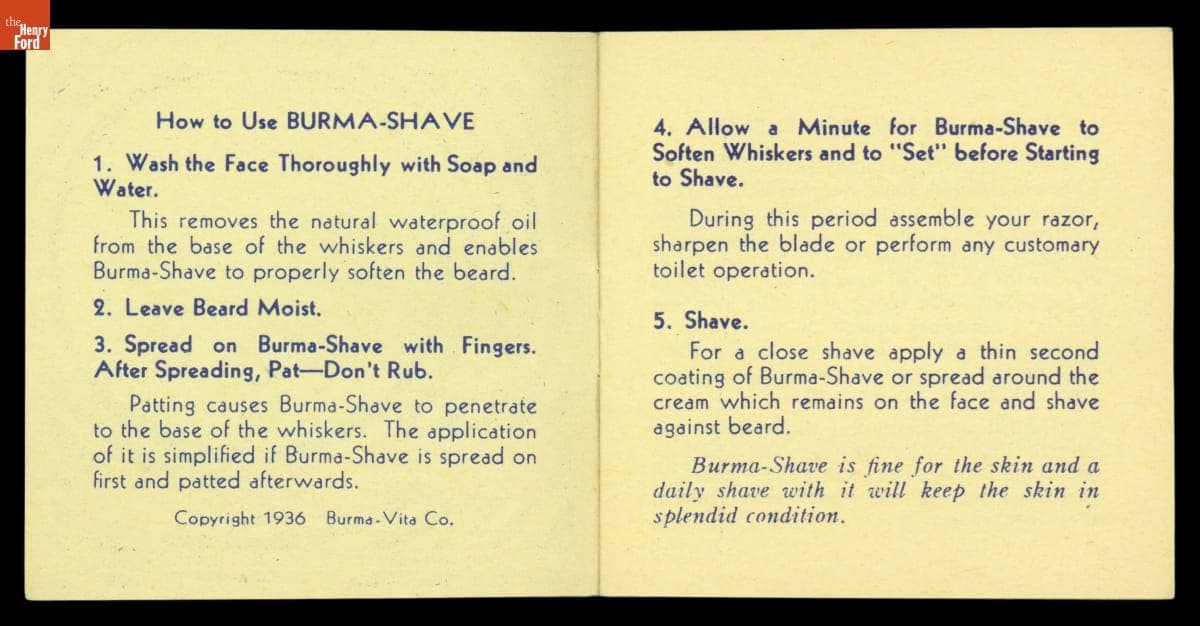 the
Henry
Ford
How to Use BURMA-SHAVE
1. Wash the Face Thoroughly with Soap and
Water.
This removes the natural waterproof oil
from the base of the whiskers and enables
Burma-Shave to properly soften the beard.
2. Leave Beard Moist.
3. Spread on Burma-Shave with Fingers.
After Spreading, Pat—Don't Rub.
Patting causes Burma-Shave to penetrate
to the base of the whiskers. The application
of it is simplified if Burma-Shave is spread on
first and patted afterwards.
Copyright 1936 Burma-Vita Co.
4. Allow a Minute for Burma-Shave to
Soften Whiskers and to "Set" before Starting
to Shave.
During this period assemble your razor,
sharpen the blade or perform any customary
toilet operation.
5. Shave.
For a close shave apply a thin second
coating of Burma-Shave or spread around the
cream which remains on the face and shave
against beard.
Burma-Shave is fine for the skin and a
daily shave with it will keep the skin in
splendid condition.